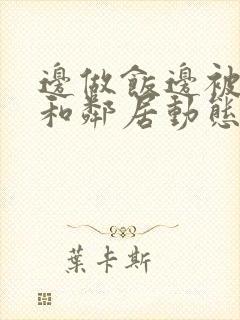 邊做飯邊被
和鄰居動態
葉卡斯